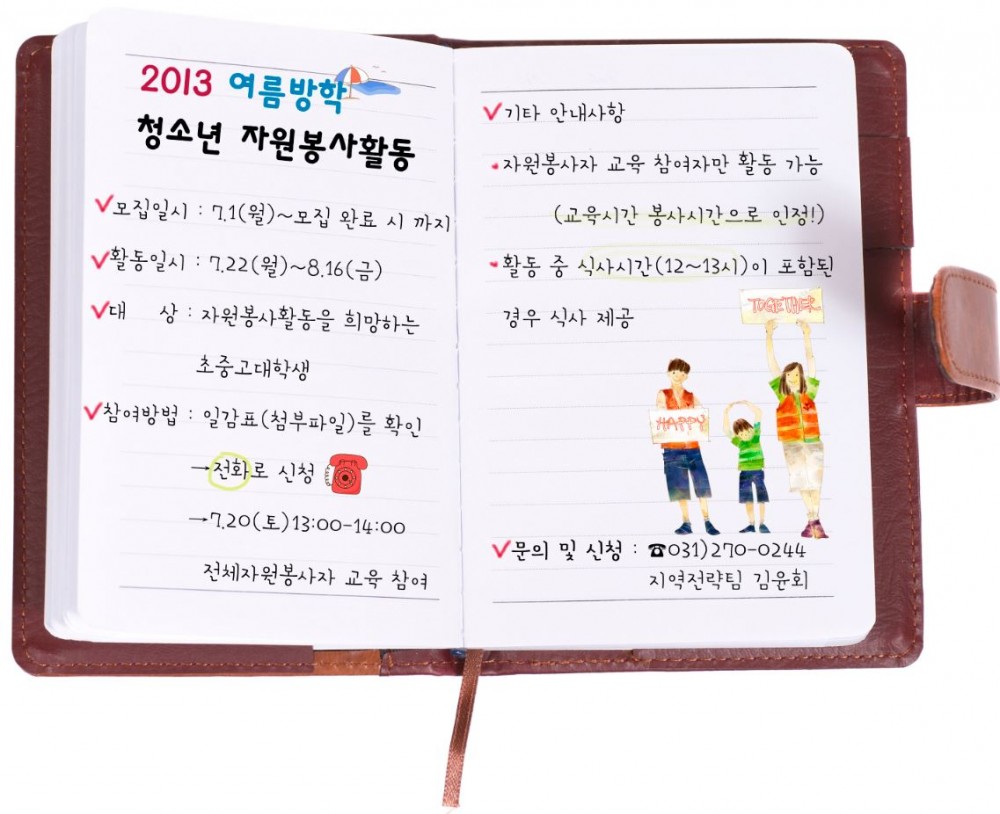 2013 여름방학
청소년 자원봉사활동
모집일시 : 7.1(월)~모집 완료 시 까지
활동일시 : 7.22(월)~8.16(금)
대 상 : 자원봉사활동을 희망하는
초중고대학생
참여방법 : 일감표(첨부파일)를 확인
→전화로 신청
→7.20(토)13:00-14:00
전체자원봉사자 교육 참여
기타 안내사항
자원봉사자 교육 참여자만 활동 가능
(교육시간 봉사시간으로 인정!)
활동 중 식사시간(12~13시)이 포함된
경우 식사 제공
TOGETHER
HAPPY
문의 및 신청 : ☎031)270-0244
지역전략팀 김윤회